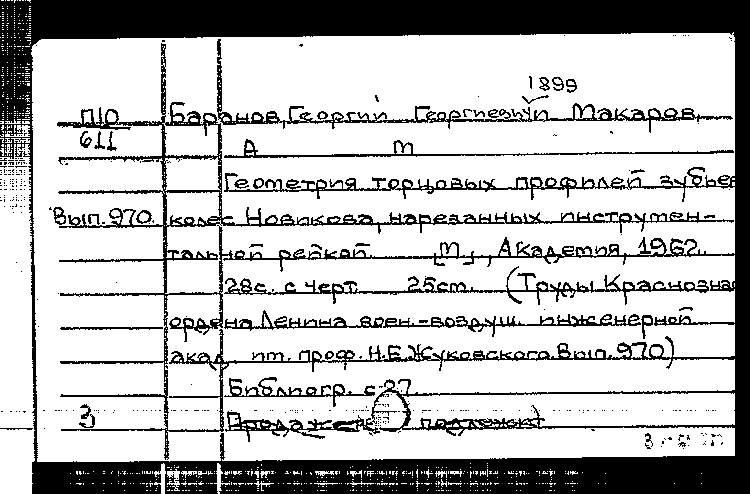 1899
П10 Баранов, Георгий Георгиевич и Макаров,
611
А М
Геометрия торцовых профилей зубьев
Вып. 970. колес Новикова, нарезанных инструмен-
тальной рейкой. [М.], Академия, 1962.
28с. с черт. 25см. (Труды Краснозна
ордена Ленина воен.-воздуш. инженерной
акад. им. проф. Н.Е. Жуковского. Вып. 970)
Библиогр. с 27
З Продаже не подлежит